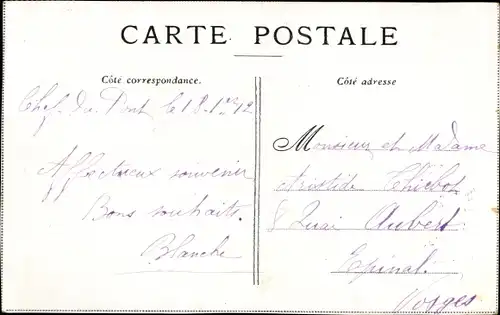 CARTE POSTALE
Côté correspondance.
Côté adresse
Chef du Pont le 18.1re 12
Affectueux souvenir
Bons souhaits.
Blanche
Monsieur et Madame
Aristide Thiebot
8 Quai Aubert
Epinal.
Vosges